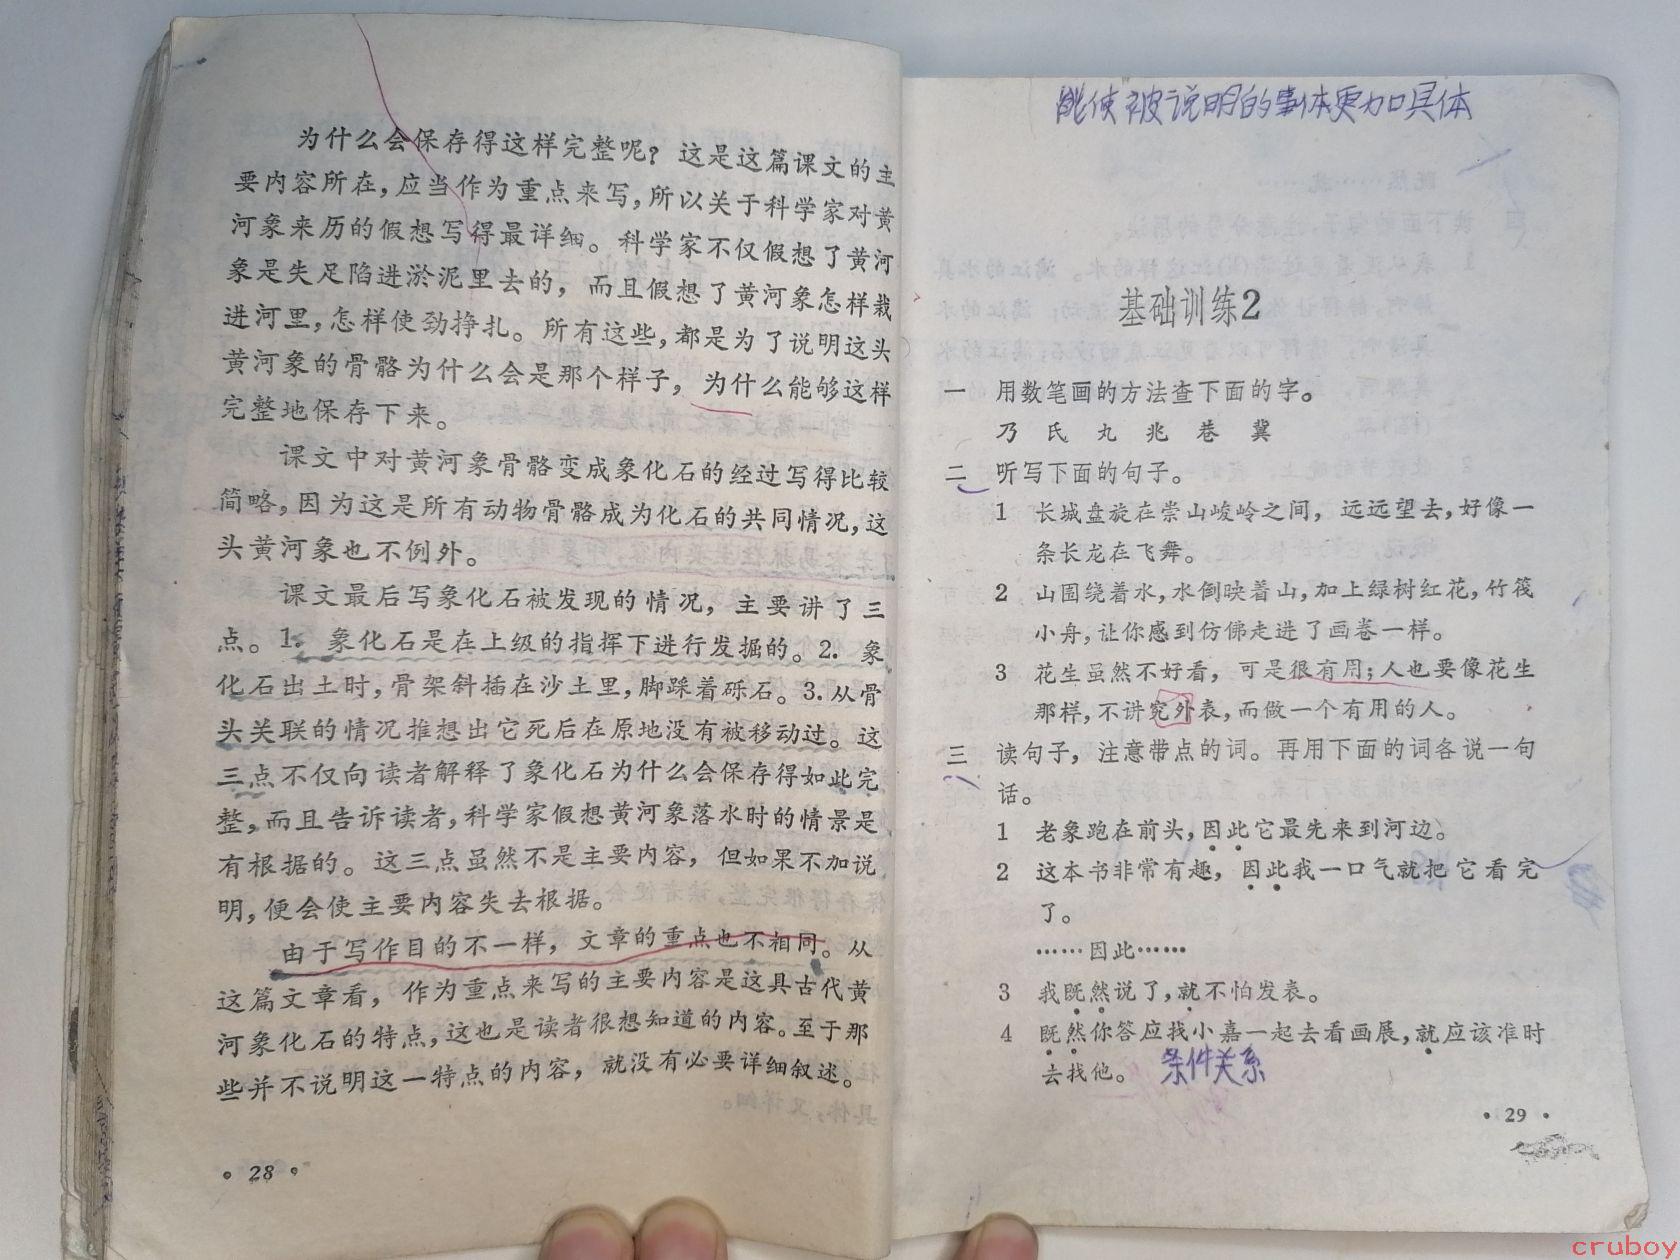 为什么会保存得这样完整呢？这是这篇课文的主
要内容所在，应当作为重点来写，所以关于科学家对黄
河象来历的假想写得最详细。科学家不仅假想了黄河
象是失足陷进淤泥里去的，而且假想了黄河象怎样栽
进河里，怎样使劲挣扎。所有这些，都是为了说明这头
黄河象的骨骼为什么会是那个样子，为什么能够这样
完整地保存下来。
课文中对黄河象骨骼变成象化石的经过写得比较
简略，因为这是所有动物骨骼成为化石的共同情况，这
头黄河象也不例外。
课文最后写象化石被发现的情况，主要讲了三
点。1. 象化石是在上级的指挥下进行发掘的。2. 象
化石出土时，骨架斜插在沙土里，脚踩着砾石。3.从骨
头关联的情况推想出它死后在原地没有被移动过。这
三点不仅向读者解释了象化石为什么会保存得如此完
整，而且告诉读者，科学家假想黄河象落水时的情景是
有根据的。这三点虽然不是主要内容，但如果不加说
明，便会使主要内容失去根据。
由于写作目的不一样，文章的重点也不相同。从
这篇文章看，作为重点来写的主要内容是这具古代黄
河象化石的特点，这也是读者很想知道的内容。至于那
些并不说明这一特点的内容，就没有必要详细叙述。
·28·
能使被说明的事体更加具体
基础训练2
一 用数笔画的方法查下面的字。
乃 氏 丸 兆 巷 冀
二 听写下面的句子。
1 长城盘旋在崇山峻岭之间，远远望去，好像一
条长龙在飞舞。
2 山围绕着水，水倒映着山，加上绿树红花，竹筏
小舟，让你感到仿佛走进了画卷一样。
3 花生虽然不好看，可是很有用；人也要像花生
那样，不讲究外表，而做一个有用的人。
三 读句子，注意带点的词。再用下面的词各说一句
话。
1 老象跑在前头，因此它最先来到河边。
2 这本书非常有趣，因此我一口气就把它看完
了。
……因此……
3 我既然说了，就不怕发表。
4 既然你答应找小嘉一起去看画展，就应该准时
去找他。 条件关系
·29·
cruboy